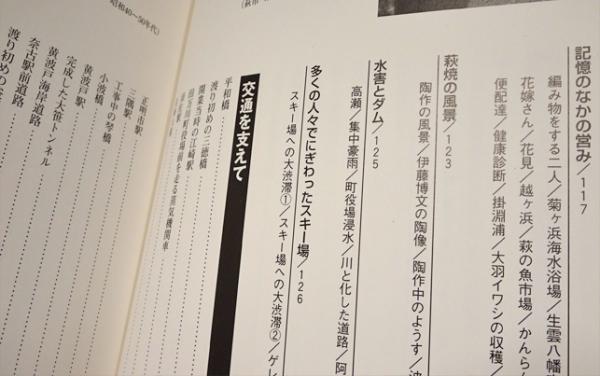 記憶のなかの営み／117
編み物をする二人／菊ヶ浜海水浴場／生雲八幡
花嫁さん／花見／越ヶ浜／萩の魚市場／かんら
便配達／健康診断／掛淵浦／大羽イワシの収穫／
萩焼の風景／123
陶作の風景／伊藤博文の陶像／陶作中のようす／
水害とダム／125
高瀬／集中豪雨／町役場浸水／川と化した道路／阿
多くの人々でにぎわったスキー場／126
スキー場への大渋滞①／スキー場への大渋滞②／ゲレ
交通を支えて
平和橋
渡り初めの三徳橋
開業当時の江崎駅
役場前を走る蒸気機関車
正明市駅
三隅駅
工事中の琴橋
小波橋
黄波戸駅
完成した大笹トンネル
黄波戸海岸道路
奈古駅前道路
渡り初めの
昭和40〜50年代）